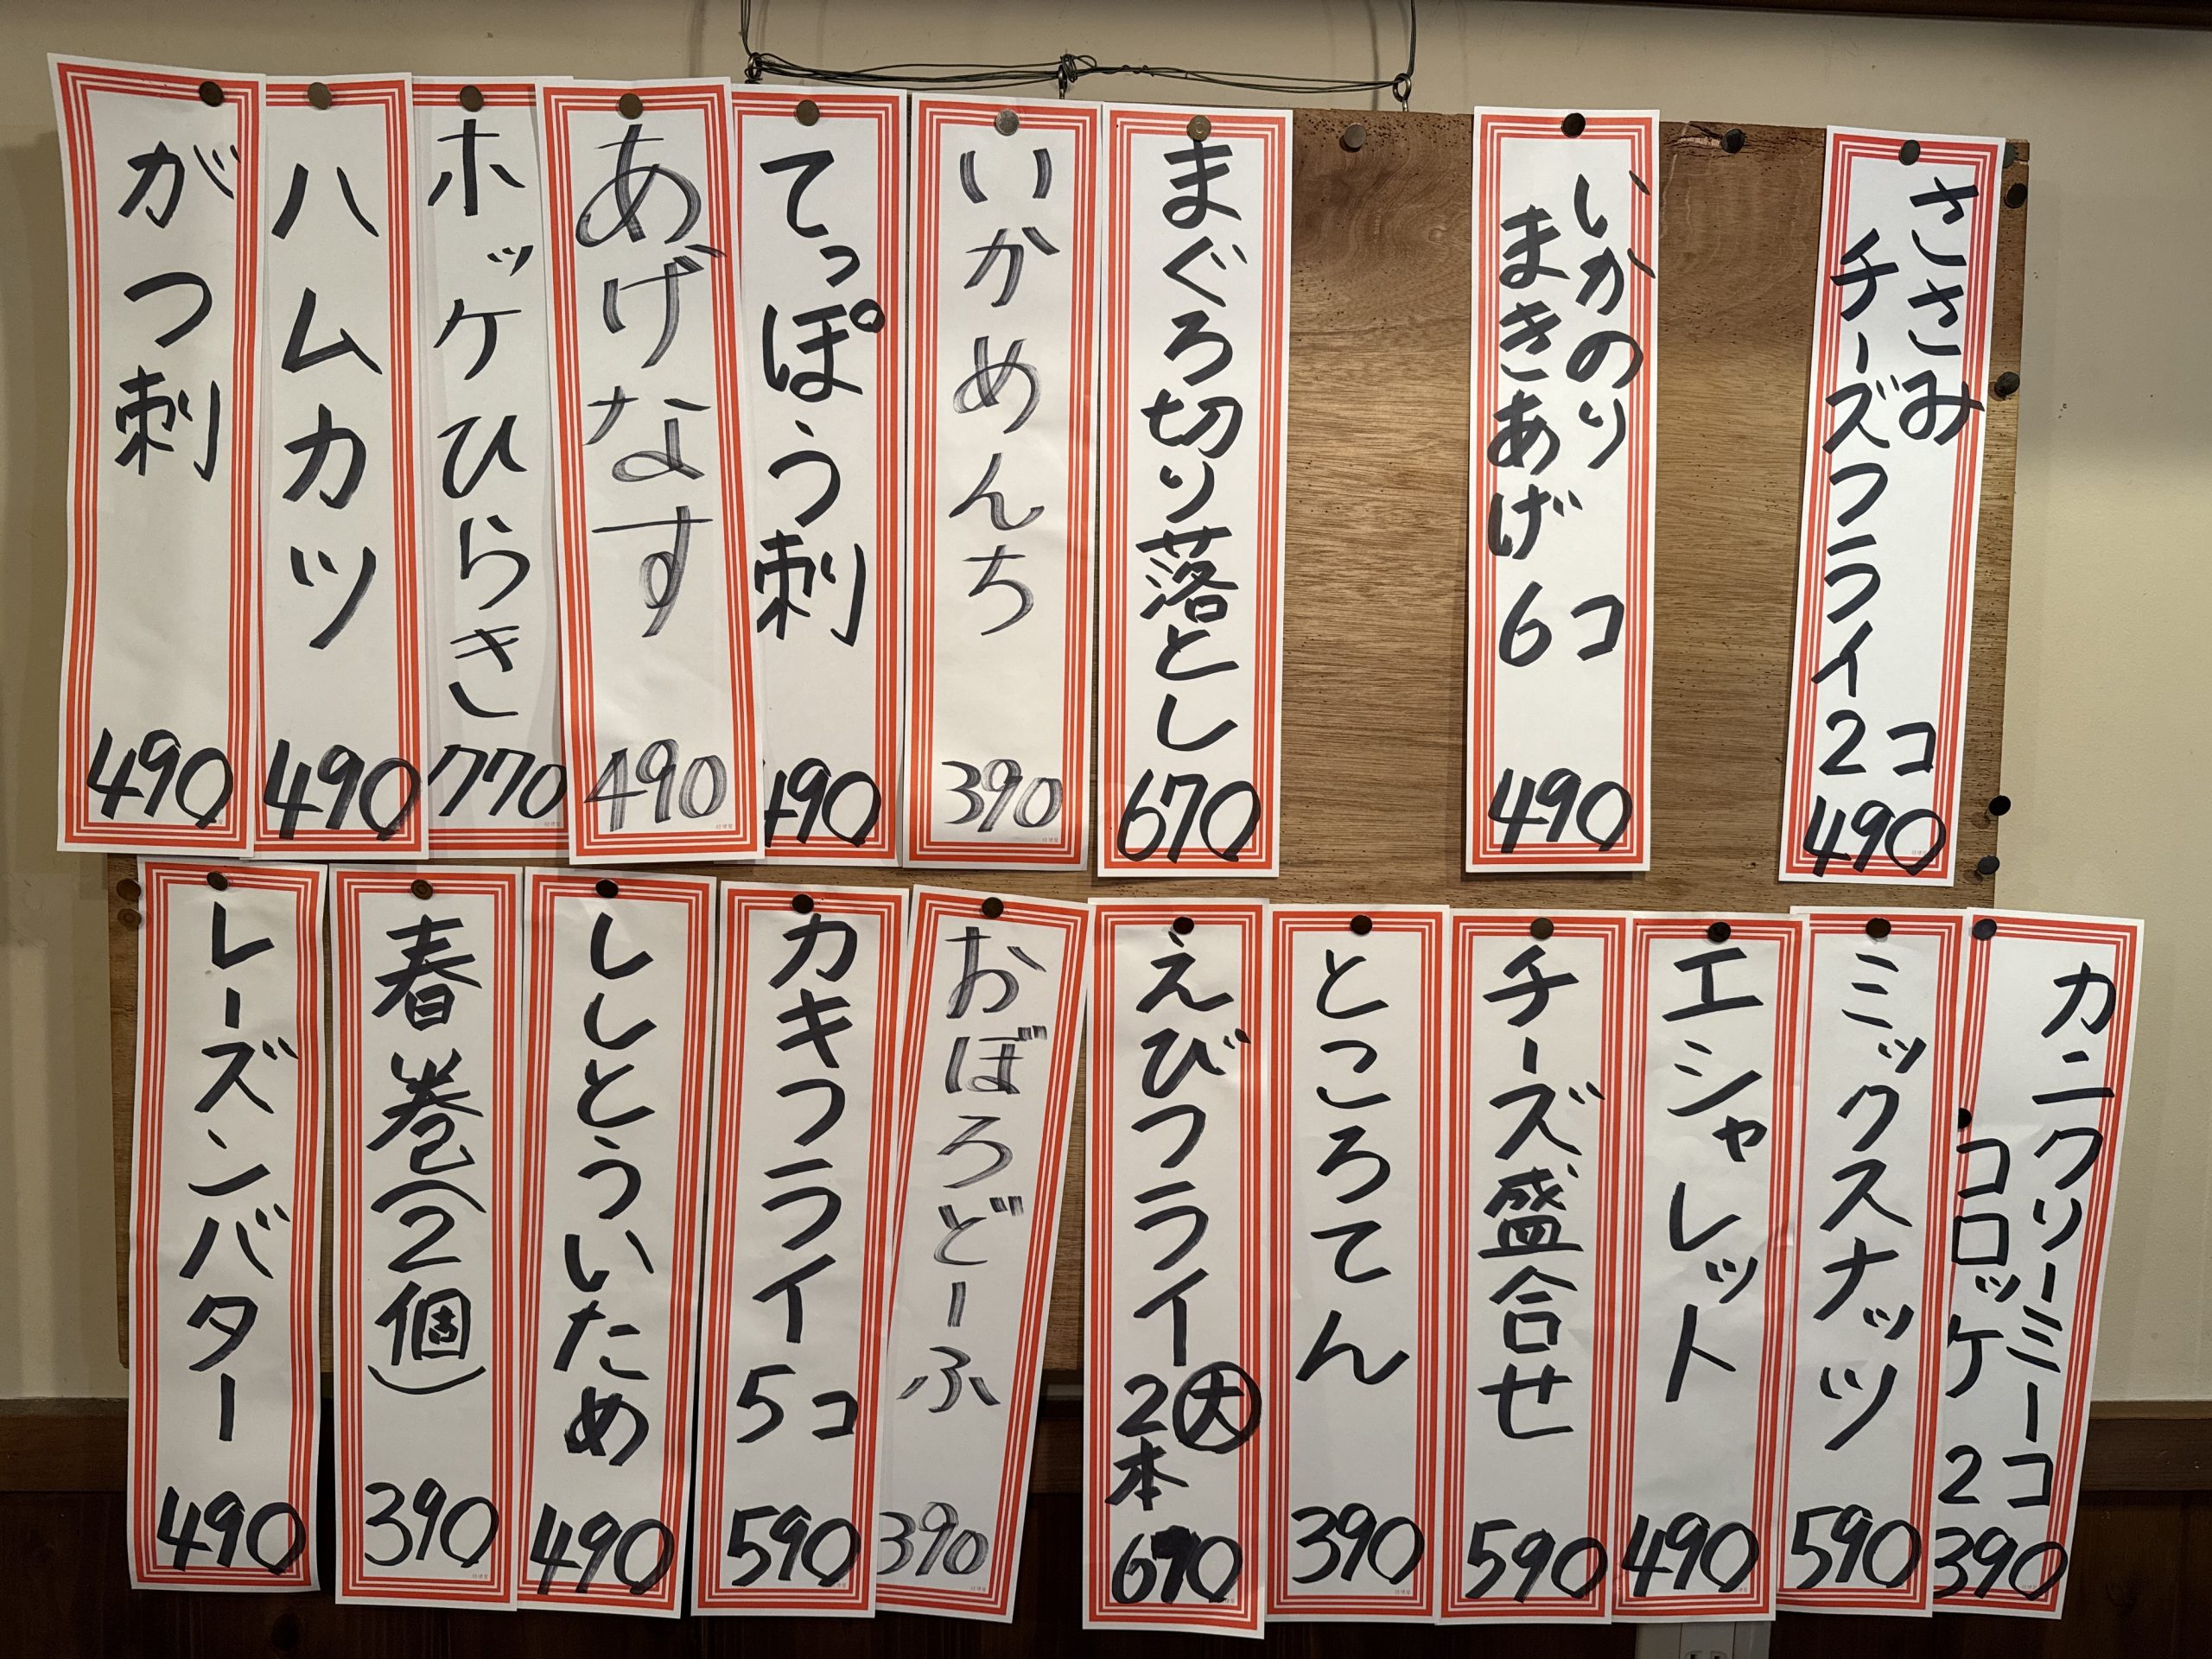 ささみ
チーズフライ2コ
490
いかのり
まきあげ 6コ
490
まぐろ切り落とし
670
いかめんち
390
てっぽう刺
490
あげなす
490
ホッケひらき
770
ハムカツ
490
がつ刺
490
カニクリーミー
コロッケ 2コ
390
ミックスナッツ
590
エシャレット
490
チーズ盛合せ
590
ところてん
390
えびフライ大
2本
おぼろどーふ
390
カキフライ
5コ
590
ししとういため
490
春巻(2個)
390
レーズンバター
490